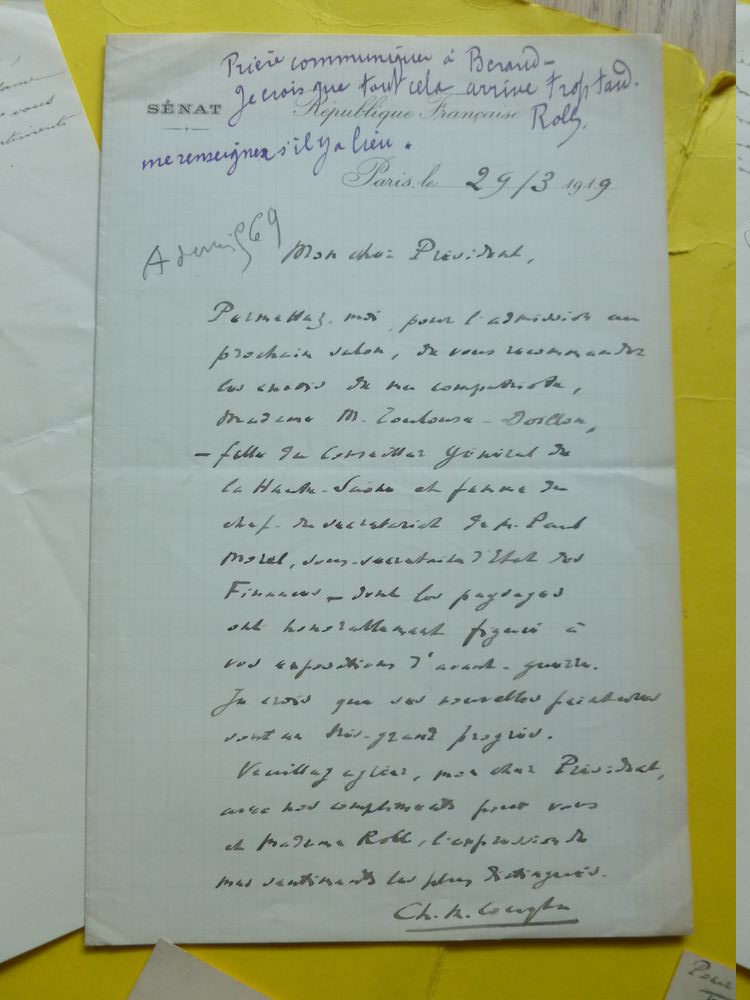 Prière communiquer à Beraud -
Je crois que tout cela arrive trop tard.
SÉNAT
République Française
Roll,
me renseigner s'il y a lieu.
Paris, le 29/3 1919
69
Mon cher Président,
Permettez-moi, pour l'admission au
prochain salon, de vous recommander
les envois de ma compatriote,
Madame M. Toulouse-Doillon,
- fille du Conseiller Général de
la Haute-Saône et femme du
chef-du secrétariat de M. Paul
Morel, sous-secrétaire d'Etat des
Finances - dont les paysages
ont honorablement figuré à
vos expositions d'avant-guerre.
Je crois que ses nouvelles peintures
sont un très-grand progrès.
Veuillez agréer, mon cher Président,
avec nos compliments pour vous
et Madame Roll, l'expression de
mes sentiments les plus distingués.
Ch. M. Couyba
vous